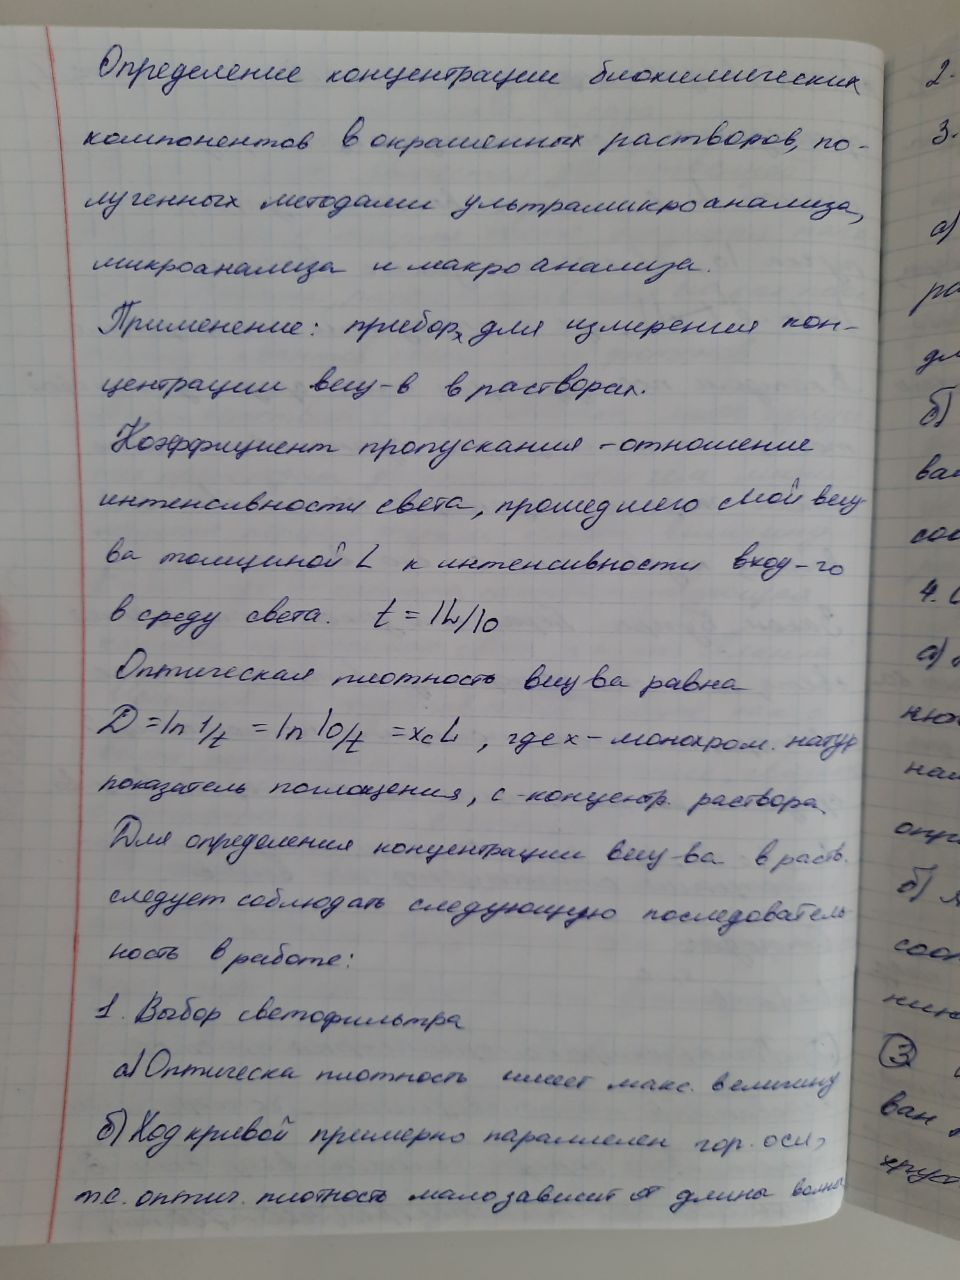 Определение концентрации биохимических
компонентов в окрашенных растворов, по-
лученных методами ультрамикроанализа,
микроанализа и макроанализа.
Применение: прибор для измерения кон-
центрации вещ-в в растворах.
Коэффициент пропускания - отношение
интенсивности света, прошедшего слой вещ-
ва толщиной L к интенсивности вход-го
в среду света. t = IL/I0
Оптическая плотность вещ ва равна
D = ln 1/t = ln I0/t = xcL, где x - монохром. натур
показатель поглощения, c - концентр. раствора
Для определения концентрации вещ-ва в раств.
следует соблюдать следующую последователь
ность в работе:
1. Выбор светофильтра
а) Оптическа плотность имеет макс. величину
б) Ход кривой примерно параллелен гор. оси,
т.е. оптич. плотность мало зависит от длины волны
2.
3.
а)
ра
дл
б)
ва
соо
4.
а)
нюх
на
опр
б)
соо
ни
3
ван